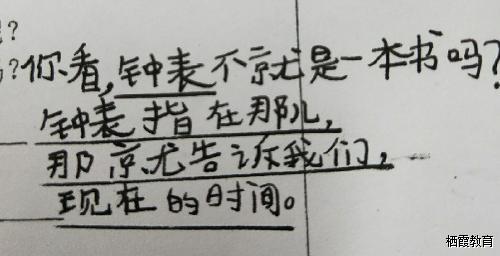 ?
?你看,钟表不就是一本书吗?
钟表指在那儿,
那就告诉我们,
现在的时间。
栖霞教育